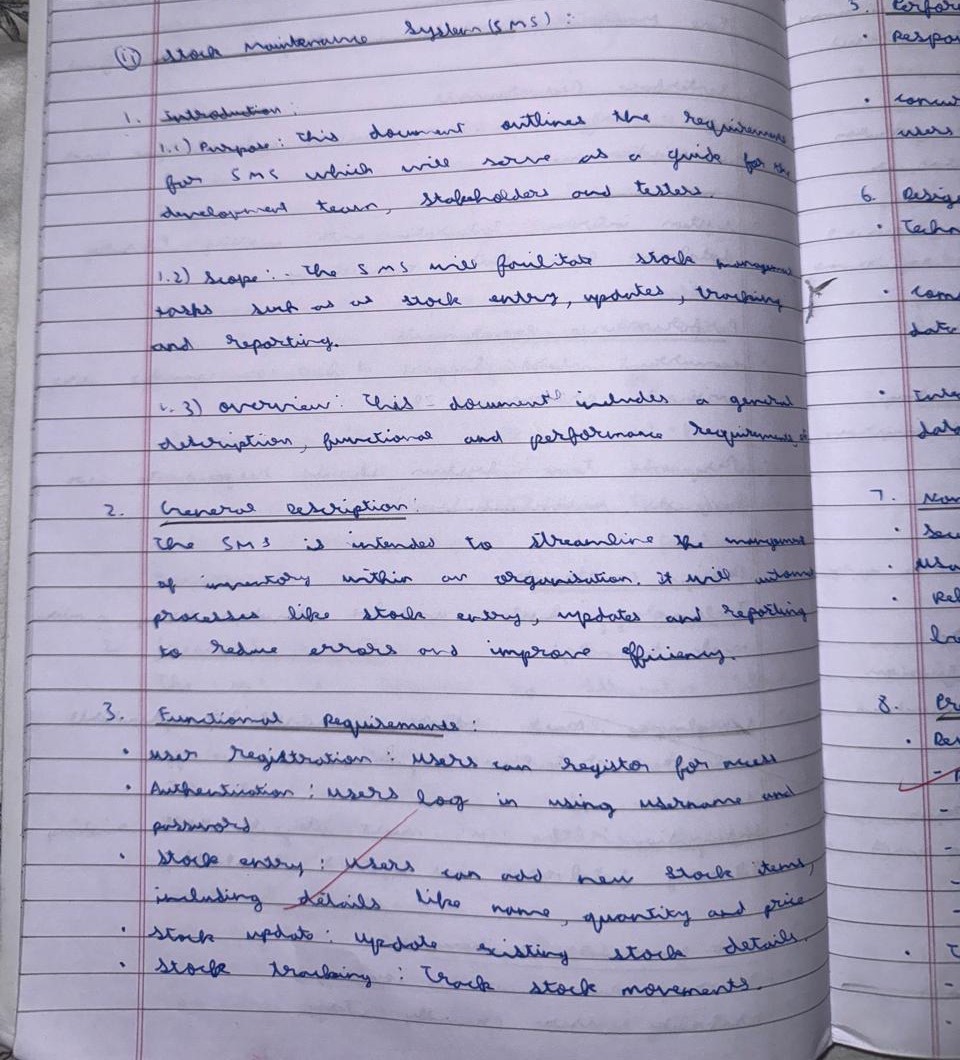 (ii) Stock Maintenance System (SMS) :
1. Introduction :
1.1) Purpose : This document outlines the requirements
for SMS which will serve as a guide for the
development team, stakeholders and testers.
1.2) Scope : - The SMS will facilitate stock management
tasks such as as stock entry, updates, tracking
and reporting.
1.3) overview : This document includes a general
description, functional and performance requirements
2. General Description :
The SMS is intended to streamline the management
of inventory within an organisation. it will
processes like stock entry, updates and reporting
to reduce errors and improve efficiency.
3. Functional Requirements :
• user registration : users can register for access
• Authentication : users log in using username and
password
• Stock entry : users can add new stock items,
including details like name, quantity and price
• Stock update : update existing stock details.
• Stock tracking : Track stock movements.
5.
•
•
users
6.
•
•
•
7.
•
•
•
8.
•
•